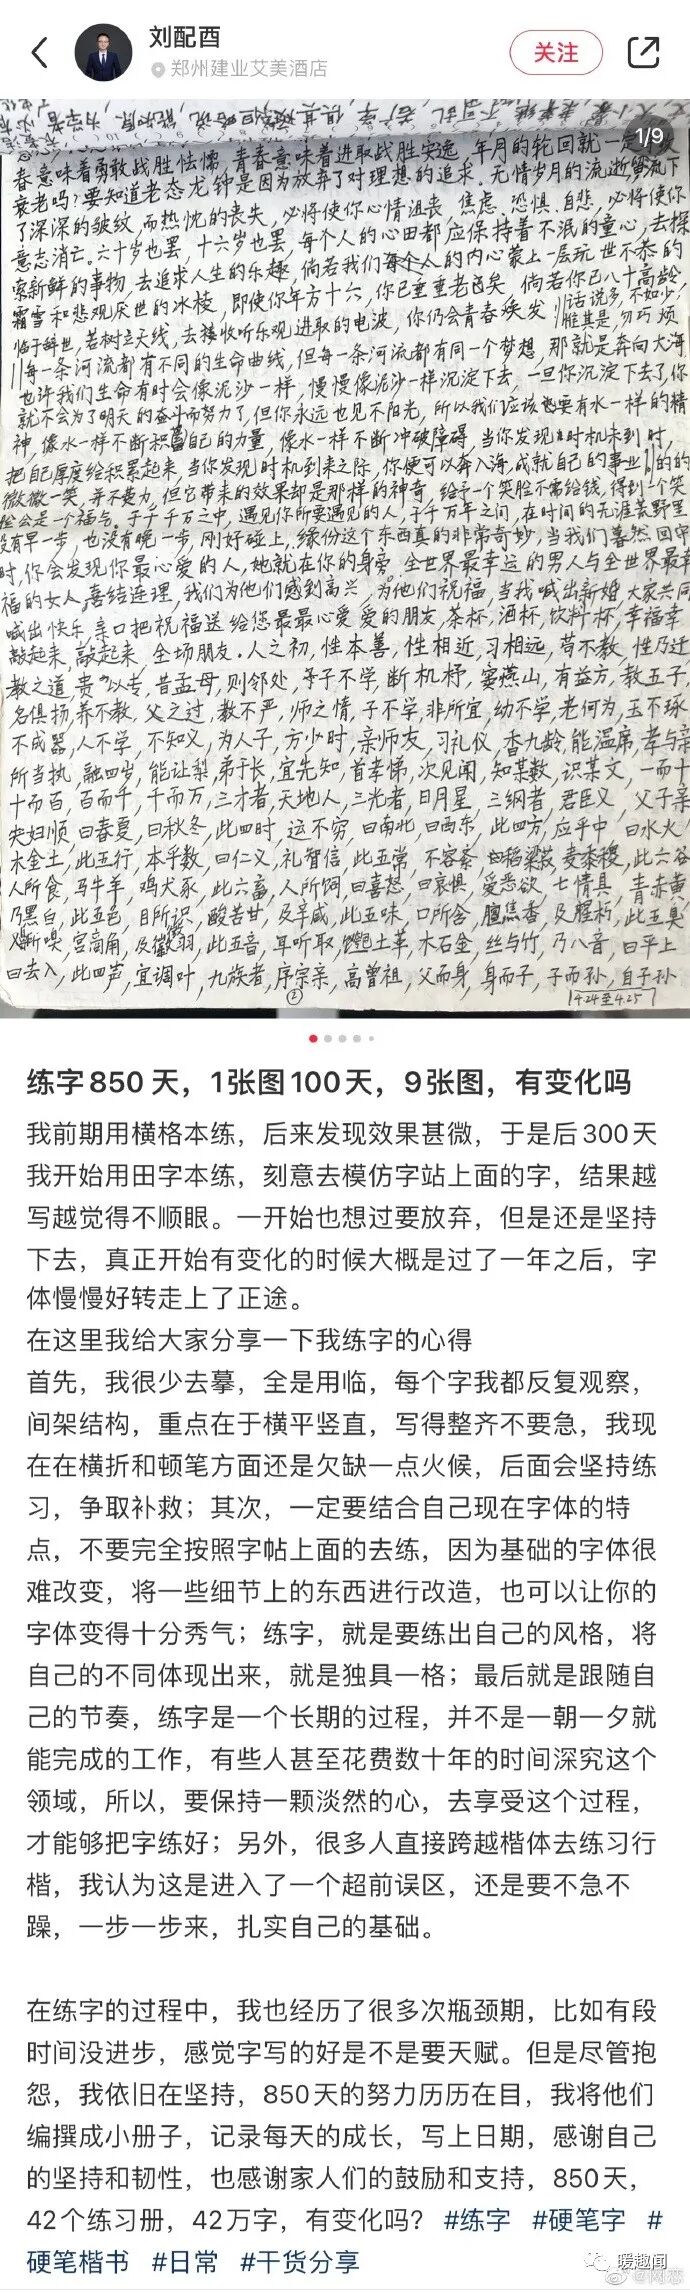 刘配酉
郑州建业艾美酒店
关注
1/9
春意味着勇敢战胜怯懦,青春意味着进取战胜安逸,年月的轮回就一定
衰老吗?要知道老态龙钟是因为放弃了对理想的追求.无情岁月的流逝,留下
了深深的皱纹,而热忱的丧失,必将使你心情沮丧.焦虑.恐惧.自悲,必将使你
意志消亡.六十岁也罢,十六岁也罢,每个人的心田都应保持着不泯的童心,去探
索新鲜的事物,去追求人生的乐趣,倘若我们每个人的内心蒙上一层玩世不恭的
霜雪和悲观厌世的冰棱,即使你年方十六,你已垂垂老矣 倘若你已八十高龄,
临于辞世,若树立天线,去接收听乐观进取的电波,你仍会青春焕发
话说多,不如少;
惟其是,勿巧 烦
每一条河流都有不同的生命曲线,但每一条河流都有同一个梦想,那就是奔向大海
也许我们生命有时会像泥沙一样,慢慢像泥沙一样沉淀下去,一旦你沉淀下去了,你
就不会为了明天的奋斗而努力了,但你永远也见不阳光,所以我们应该也要有水一样的精
神,像水一样不断积蓄自己的力量,像水一样不断冲破障碍,当你发现时机未到时,
把自己厚度给积累起来,当你发现时机到来之际,你便可以奔入海,成就自己的事业
微微一笑,并不费力,但它带来的效果却是那样的神奇,给予一个笑脸不需给钱,得到一个笑
脸会是一个福气.于千千万之中,遇见你所要遇见的人,于千万年之间,在时间的无涯荒野里
没有早一步,也没有晚一步,刚好碰上,缘份这个东西真的非常奇妙,当我们蓦然回首
时,你会发现你最心爱的人,她就在你的身旁.全世界最幸运的男人与全世界最幸
福的女人,喜结连理,我们为他们感到高兴,为他们祝福,当我喊出新婚,大家共同
喊出快乐,亲口把祝福送给您最最心爱爱的朋友,茶杯,酒杯,饮料杯,幸福幸
敲起来,敲起来,全场朋友.人之初,性本善,性相近,习相远,苟不教,性乃迁
教之道 贵以专,昔孟母,则邻处,子不学 断机杼,窦燕山,有益方,教五子,
名俱扬,养不教,父之过,教不严,师之情,子不学,非所宜,幼不学,老何为,玉不琢
不成器,人不学,不知义,为人子,方少时,亲师友,习礼仪,香九龄,能温席,孝与亲
所当执,融四岁,能让梨,弟于长,宜先知,首孝悌,次见闻,知某数,识某文,一而十
十而百,百而千,千而万,三才者,天地人,三光者,日月星,三纲者 君臣义,父子亲
夫妇顺,曰春夏,曰秋冬,此四时,运不穷,曰南北,曰西东,此四方,应乎中 曰水火
木金土,此五行,本乎数,曰仁义,礼智信,此五常,不容紊 稻粱菽,麦黍稷,此六谷
人所食,马牛羊,鸡犬豕,此六畜,人所饲,曰喜怒,曰哀惧,爱恶欲,七情具,青赤黄
乃黑白,此五色,目所识,酸苦甘,及辛咸,此五味,口所含,膻焦香,及腥朽,此五臭
所嗅,宫商角,及徵羽,此五音,耳听取,匏土革,木石金,丝与竹,乃八音,曰平上
曰去入,此四声,宜调叶,九族者,序宗亲,高曾祖,父而身,身而子,子而孙,自子孙
②
4.24至4.25
练字850 天，1张图100天，9张图，有变化吗
我前期用横格本练，后来发现效果甚微，于是后300天
我开始用田字本练，刻意去模仿字站上面的字，结果越
写越觉得不顺眼。一开始也想过要放弃，但是还是坚持
下去，真正开始有变化的时候大概是过了一年之后，字
体慢慢好转走上了正途。
在这里我给大家分享一下我练字的心得
首先，我很少去摹，全是用临，每个字我都反复观察，
间架结构，重点在于横平竖直，写得整齐不要急，我现
在在横折和顿笔方面还是欠缺一点火候，后面会坚持练
习，争取补救；其次，一定要结合自己现在字体的特
点，不要完全按照字帖上面的去练，因为基础的字体很
难改变，将一些细节上的东西进行改造，也可以让你的
字体变得十分秀气；练字，就是要练出自己的风格，将
自己的不同体现出来，就是独具一格；最后就是跟随自
己的节奏，练字是一个长期的过程，并不是一朝一夕就
能完成的工作，有些人甚至花费数十年的时间深究这个
领域，所以，要保持一颗淡然的心，去享受这个过程，
才能够把字练好；另外，很多人直接跨越楷体去练习行
楷，我认为这是进入了一个超前误区，还是要不急不
躁，一步一步来，扎实自己的基础。
在练字的过程中，我也经历了很多次瓶颈期，比如有段
时间没进步，感觉字写的好是不是要天赋。但是尽管抱
怨，我依旧在坚持，850天的努力历历在目，我将他们
编撰成小册子，记录每天的成长，写上日期，感谢自己
的坚持和韧性，也感谢家人们的鼓励和支持，850天，
42个练习册，42万字，有变化吗？ #练字 #硬笔字 #
硬笔楷书 #日常 #干货分享
暖趣闻
@网恋